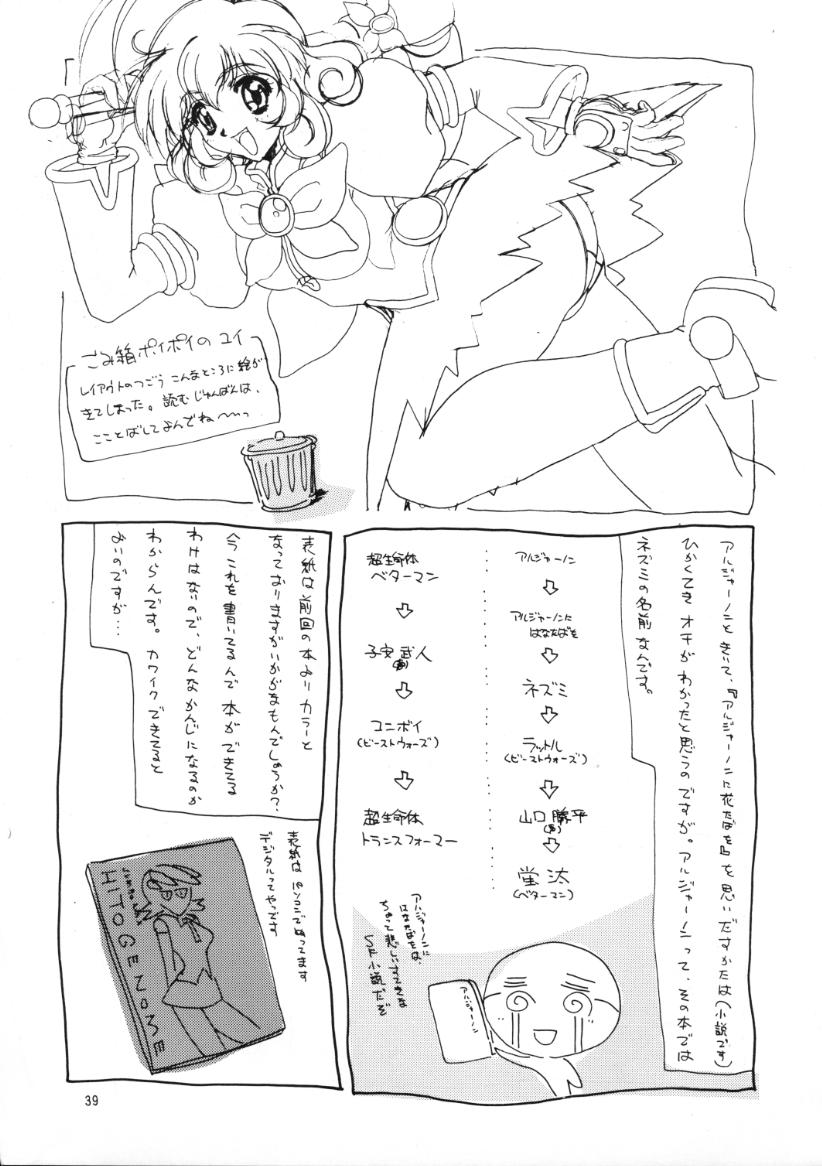 ごみ箱ポイポイのユイ
レイアウトのつごう こんなところに絵が
きてしまった。読むじゅんばんは、
ここ とばしてよんでね〜〜っ
アルジャーノンときいて、『アルジャーノンに花たばを』を思いだすかたは(小説です)
ひかくてき オチが わかったと思うのですが。アルジャーノンって、その本では
ネズミの名前なんです。
アルジャーノン
⇩
アルジャーノンに
はなたばを
⇩
ネズミ
⇩
ラットル
(ビーストウォーズ)
⇩
山口 勝平
⇩
蛍汰
(ベターマン)
超生命体
ベターマン
⇩
子安 武人
⇩
コンボイ
(ビーストウォーズ)
⇩
超生命体
トランスフォーマー
アルジャーノンに
はなたばをは、
ちょっと悲しいすてきな
SF小説だぞ
アルジャーノン
表紙は前回の本よりカラーと
なっておりますがいかがなもんでしょうか?
今これを書いてるんで 本ができてる
わけはないので、どんなかんじになるのか
わからんです。カワイクできてると
よいのですが…
表紙は パソコンでぬってます
デジタルってやつです
HITOGENOME
39